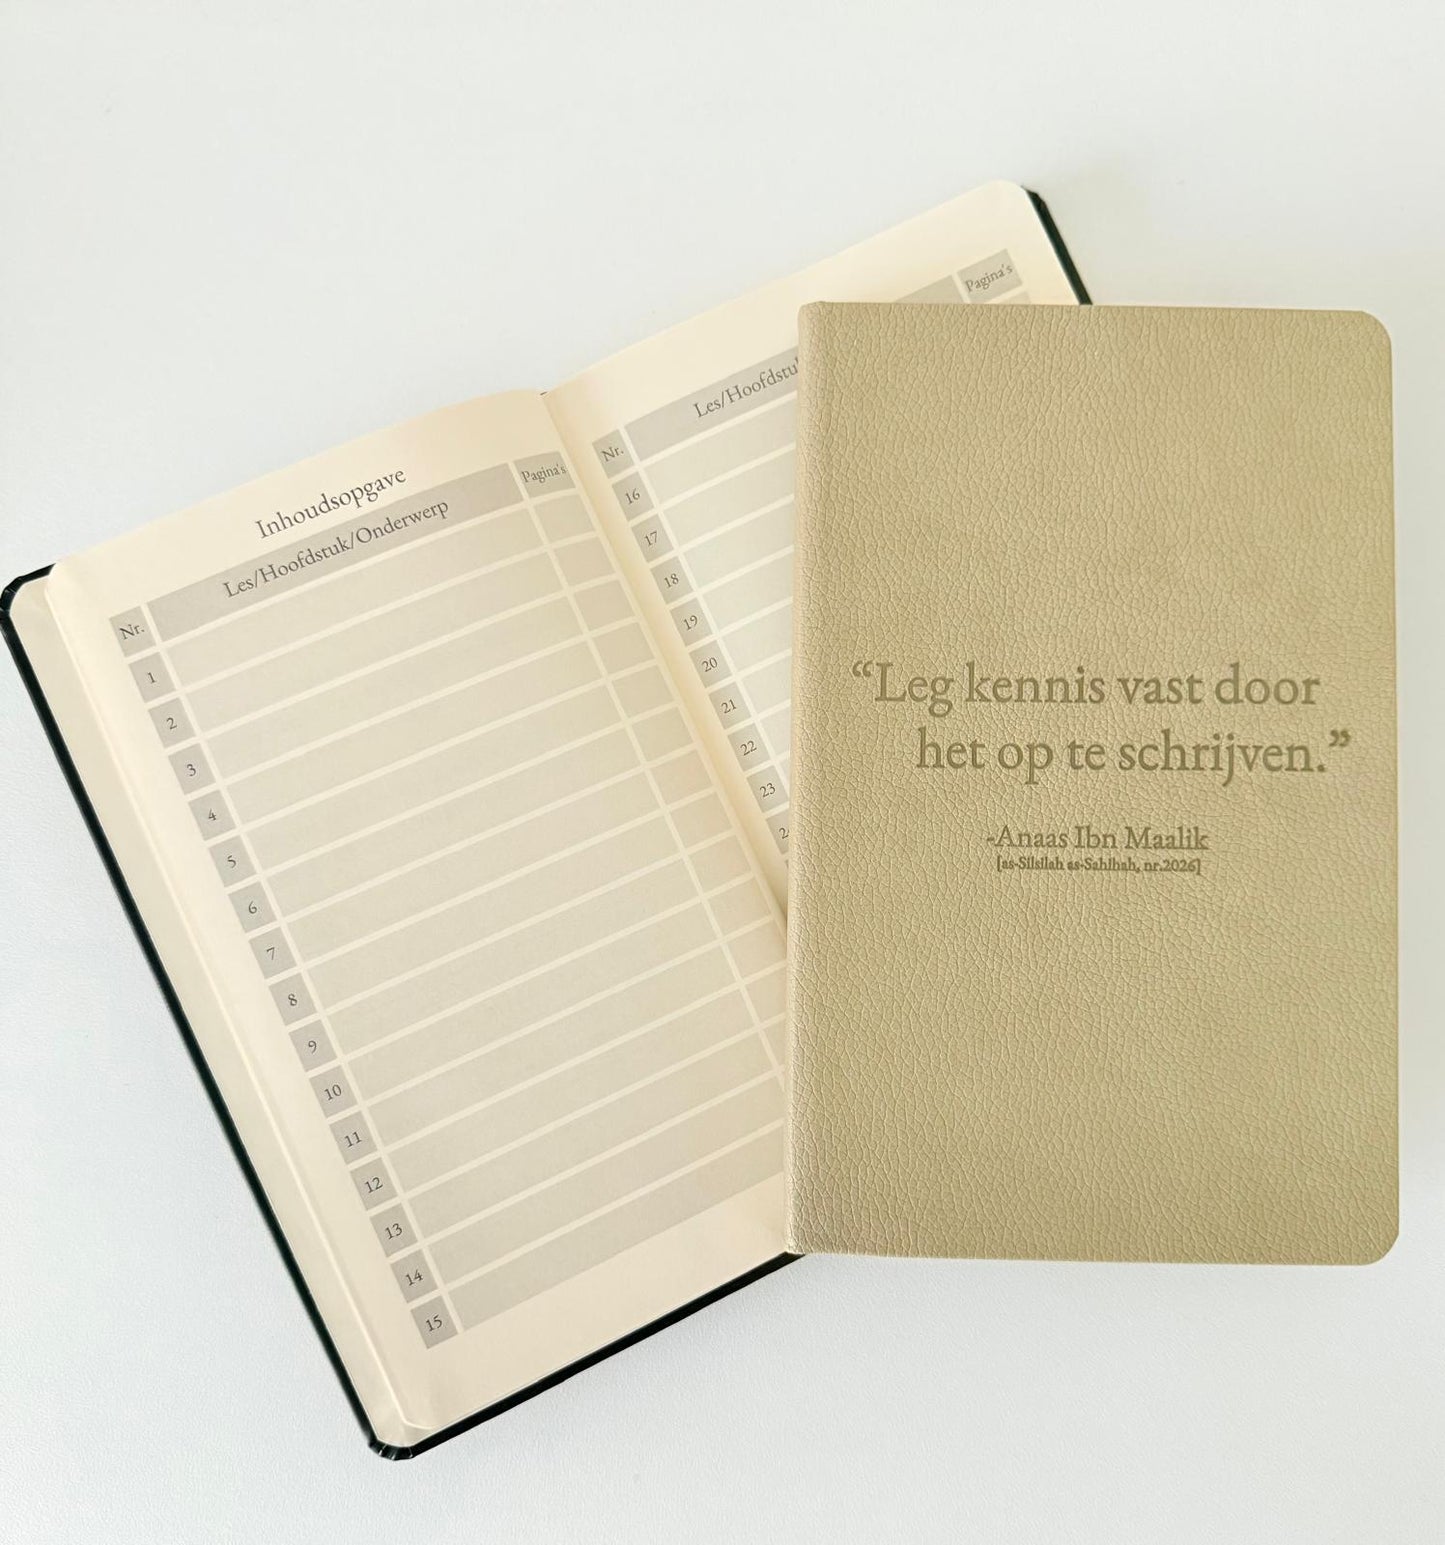 Inhoudsopgave
Nr. Les/Hoofdstuk/Onderwerp Pagina's
1
2
3
4
5
6
7
8
9
10
11
12
13
14
15
Nr. Les/Hoofdstu Pagina's
16
17
18
19
20
21
22
23
“Leg kennis vast door
het op te schrijven.”
-Anaas Ibn Maalik
[as-Silsilah as-Sahihah, nr.2026]